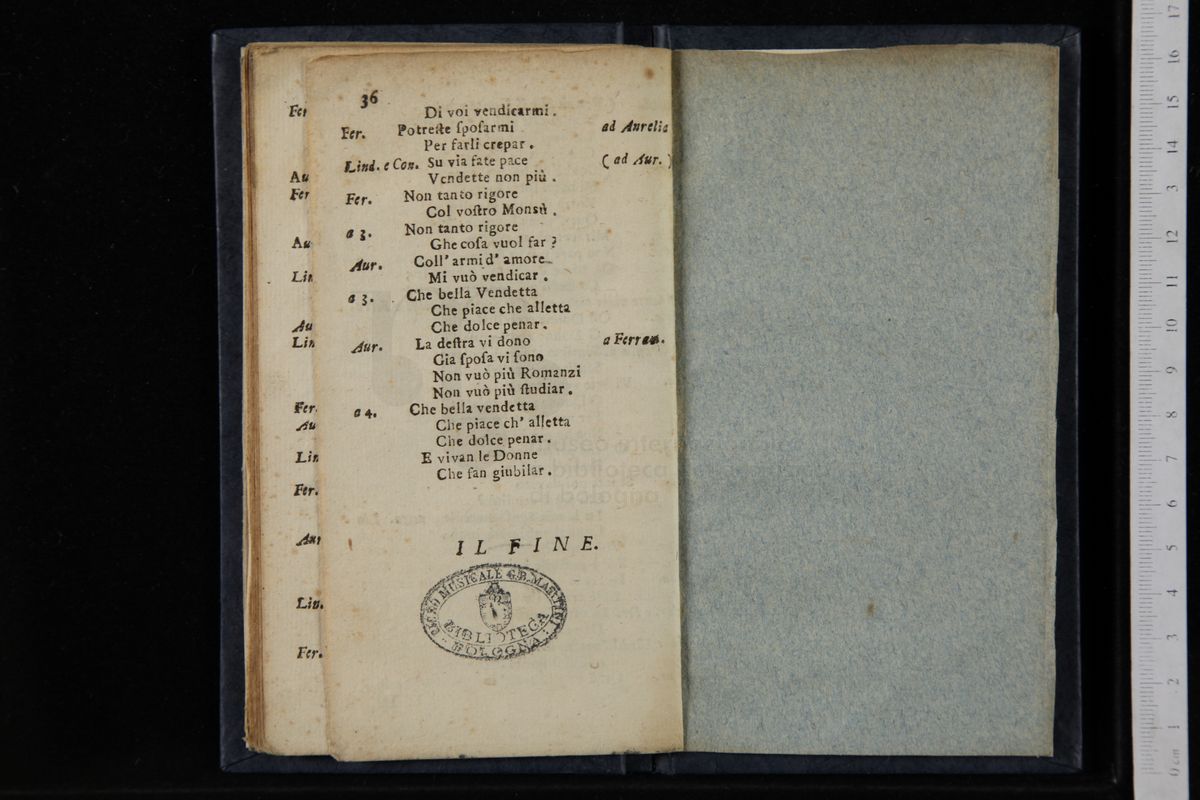 36
Di voi vendicarmi.
Fer. Potreſte ſpoſarmi ad Aurelia
Per farli crepar.
Lind. e Con. Su via fate pace ( ad Aur. )
Vendette non più.
Fer. Non tanto rigore
Col voſtro Monsù.
a 3. Non tanto rigore
Ghe coſa vuol far?
Aur. Coll' armi d' amore
Mi vuò vendicar.
a 3. Che bella Vendetta
Che piace che alletta
Che dolce penar.
Aur. La deſtra vi dono a Ferran.
Gia ſpoſa vi ſono
Non vuò più Romanzi
Non vuò più ſtudiar.
a 4. Che bella vendetta
Che piace ch' alletta
Che dolce penar.
E vivan le Donne
Che fan giubilar.
IL FINE.
LICEO MUSICALE G.B. MARTINI
BIBLIOTECA
BOLOGNA
Fer
Au
Fer
Au
Lin
Au
Lin
Fer.
Au
Lin
Fer.
Aur
Lin.
Fer.
museo inter
biblioteca
di bologna
0 cm 1 2 3 4 5 6 7 8 9 10 11 12 13 14 15 16 17